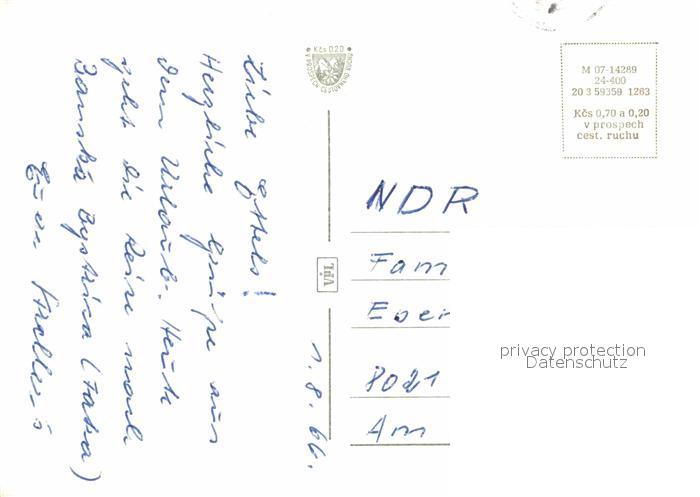 Liebe Ebels!
Herzliche Grüße aus
dem Urlaub. Heute
geht die Reise nach
Banská Bystrica (Tatra)
Eure
1.8.66.
Kčs 0.20
VPL
M 07-14289
24-400
20 3 59359 1263
Kčs 0,70 a 0,20
v prospech
cest. ruchu
NDR
Fam
Eber
8021
Am
privacy protection
Datenschutz